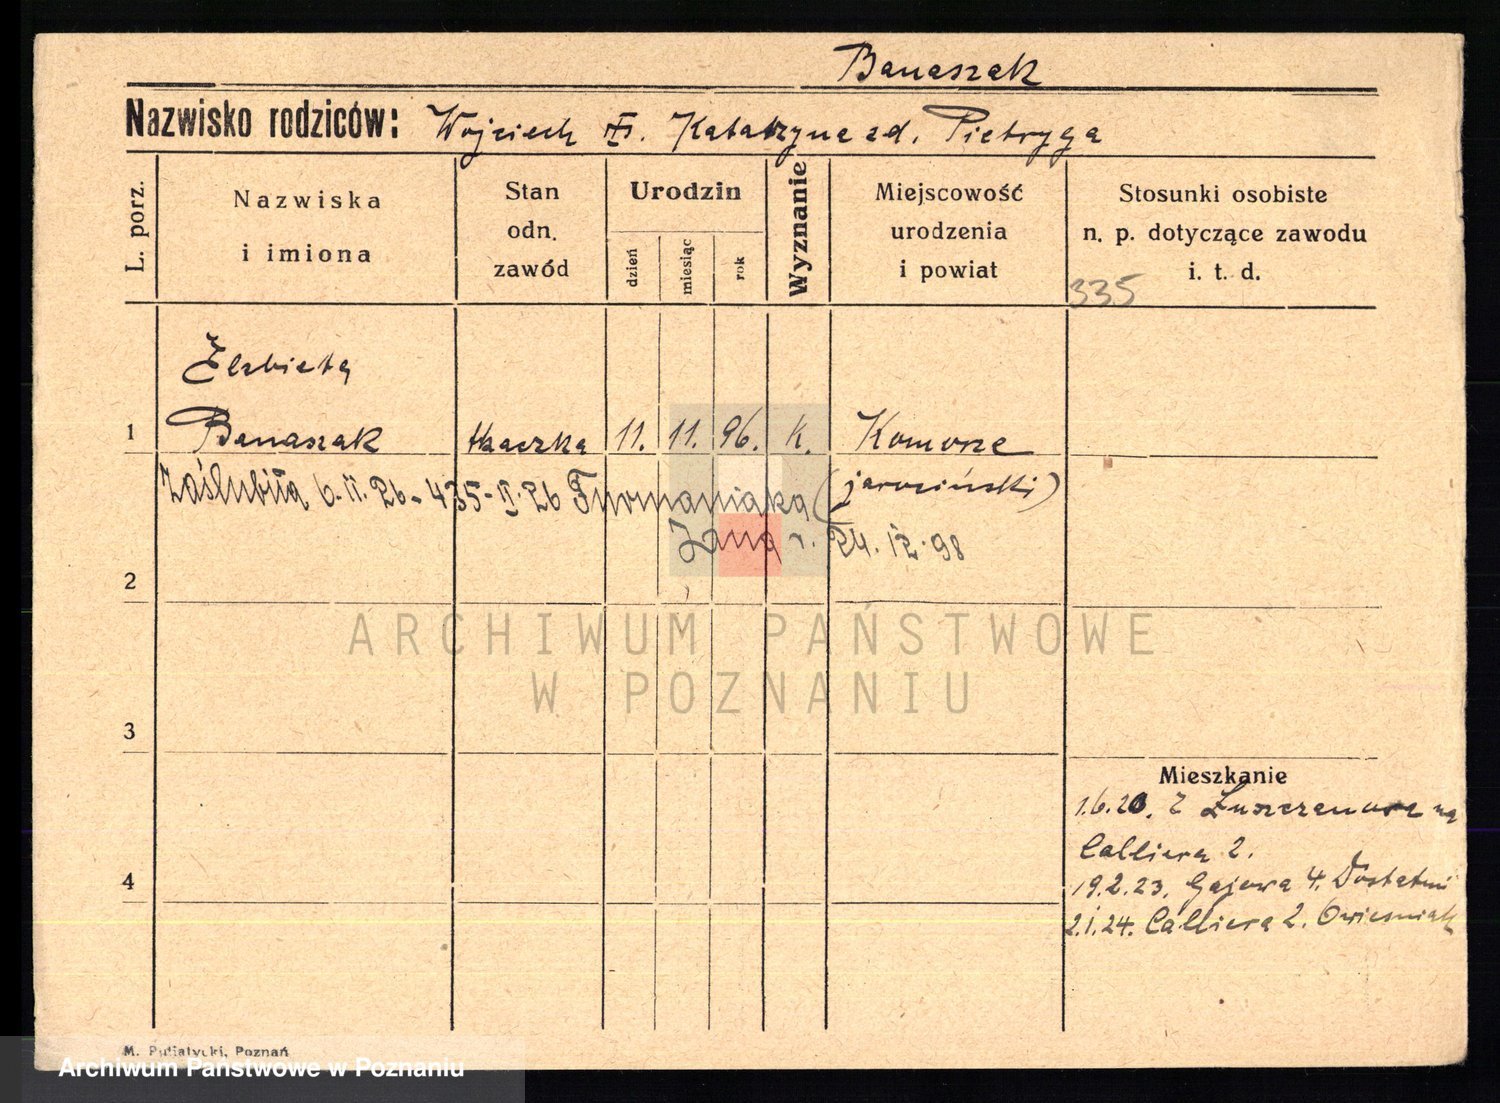 Banaszak
Nazwisko rodziców: Wojciech Katarzyna zd. Pietryga
L. porz.
Nazwiska
i imiona
Stan
odn.
zawód
Urodzin
dzień
miesiąc
rok
Wyznanie
Miejscowość
urodzenia
i powiat
Stosunki osobiste
n. p. dotyczące zawodu
i. t. d.
335
Elżbieta
1 Banaszak tkaczka 11. 11. 96. k. Komorze
Zaślubiła 6.II.26 - 435-II-26 Furmaniaka (jarociński)
Jana 24.12.98
2
ARCHIWUM PAŃSTWOWE
W POZNANIU
3
Mieszkanie
1.6.20. Z na
Calliera 2.
4
19.2.23. Gajowa 4. Dostatni
2.1.24. Calliera 2. Owieśniak
M. Putiatycki, Poznań
Archiwum Państwowe w Poznaniu